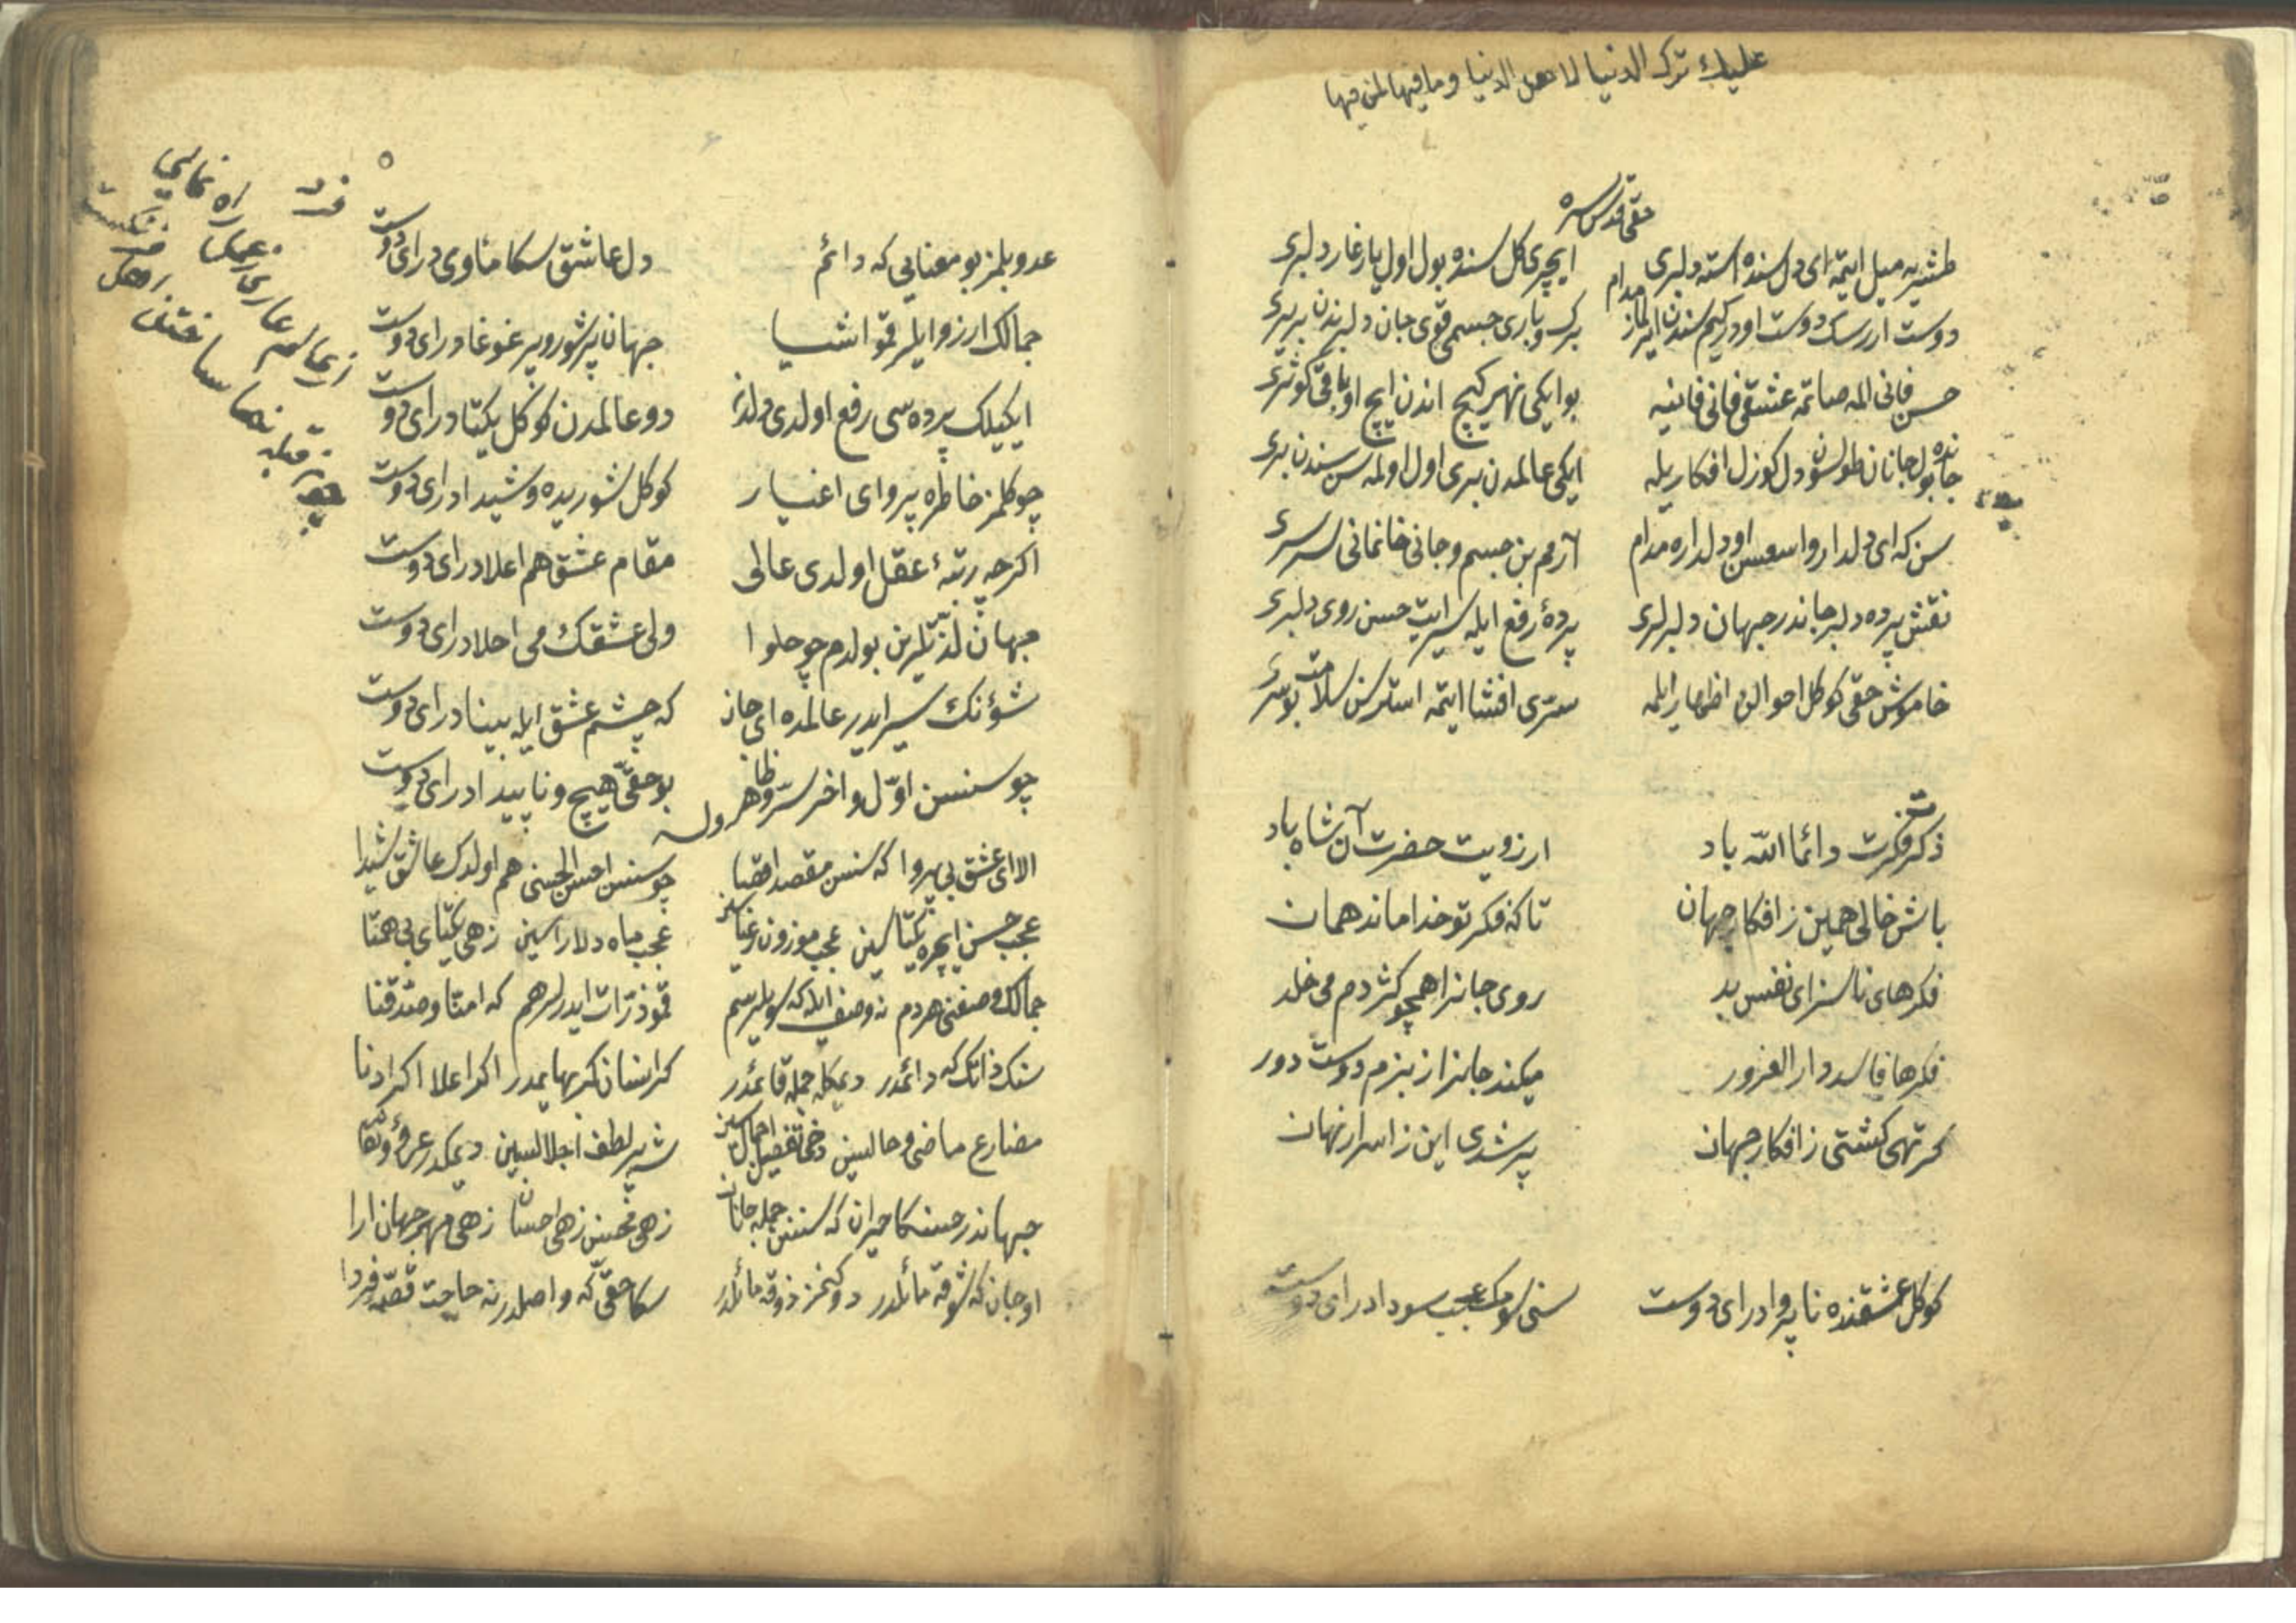 عليك ترك الدنيا لاهل الدنيا وما فيها لمن فيها
حقی قدس سره
طشره میل ایتمه ای دل سنده استه دلبری ایچری کل سنده بول اول یار غار دلبری
دوست ارسك دوست اودر کیم سندن ایرلماز مدام برك وباری جسمی قوی جان دلبرندن بر بری
حسن فانی المه صاتمه عشقی فانی فانیه بو ایکی نهری کیچ اندن ایچ او باقی کوثری
جانده بول جانان طولسون دل کوزل افکاریله ایکی عالمدن بری اول اولمه سن سندن بری
سن که ای دلدار واسعسن اودلداره مدام آرم بن جسم وجانی خانمانی سرسری
نقش پرده دلبر جاندر جهان دلبرلری پرده رفع ایله سیر ایت حسن روی دلبری
خاموش حقی کوکل احوالن اظهار ایلمه سرّی افشا ایتمه استرسن سلامت بو سری
ذکر وفکرت دائما الله باد ارزویت حضرت آن شاه باد
باش خالی همین ز افکار جهان تا که فکر تو خدا ماند همان
فکرهای ناسزای نفس بد روی جانرا همچو کژدم می خلد
فکرها فاسد دار الغرور میکند جانرا از بزم دوست دور
کر تهی کشتی ز افکار جهان پر شدی این ز اسرار نهان
کوکل عشقنده ناپروادر ای دوست سنی سومك عجب سودادر ای دوست
فرد
عدو بلمز بو معنایی که دائم دل عاشق سکا مأوی در ای دوست
جمالك ارزو ایلر قمو اشیا جهان پر شور وپر غوغادر ای دوست
ایکیلك پرده سی رفع اولدی دلدن دو عالمدن کوکل یکتادر ای دوست
چو کلمز خاطره پروای اغیار کوکل شوریده وشیدادر ای دوست
اکرچه رتبهٔ عقل اولدی عالی مقام عشق هم اعلادر ای دوست
جهان لذتلرین بولدم چو حلوا ولی عشقك می احلادر ای دوست
شؤنك سیر ایدر عالمده ای جان که چشم عشق ایله بینادر ای دوست
چو سنسن اوّل واخر سرّ وظاهر بو حقّی هیچ وناپیدادر ای دوست
وله
الا ای عشق بی پروا که سنسن مقصد اقصا چو سنسن احسن الحسنی هم اولدك عاشق شیدا
عجب حسن ایچره یکتاسین عجب موزون ورعناسین عجب ماه دلاراسین زهی یکتای بی همتا
جمالك وصفنی هردم نه وصف ایله که سویلرسم قمو ذرّات ایدرلر هم که امنّا وصدّقنا
سنك ذاتك که دائمدر دیمکله جمله قائمدر کر انسان کر بهایمدر اکر اعلا اکر ادنا
مضارع ماضی وحالسین دخی تفصیل اجمالسین
جهاندر حسنکا حیران که سنسن جمله جانان زهی محسن زهی احسان زهی مهر جهان ارا
او جان که شوقه مائلدر سکا حقّی که واصلدر نه حاجت قصّه فردا